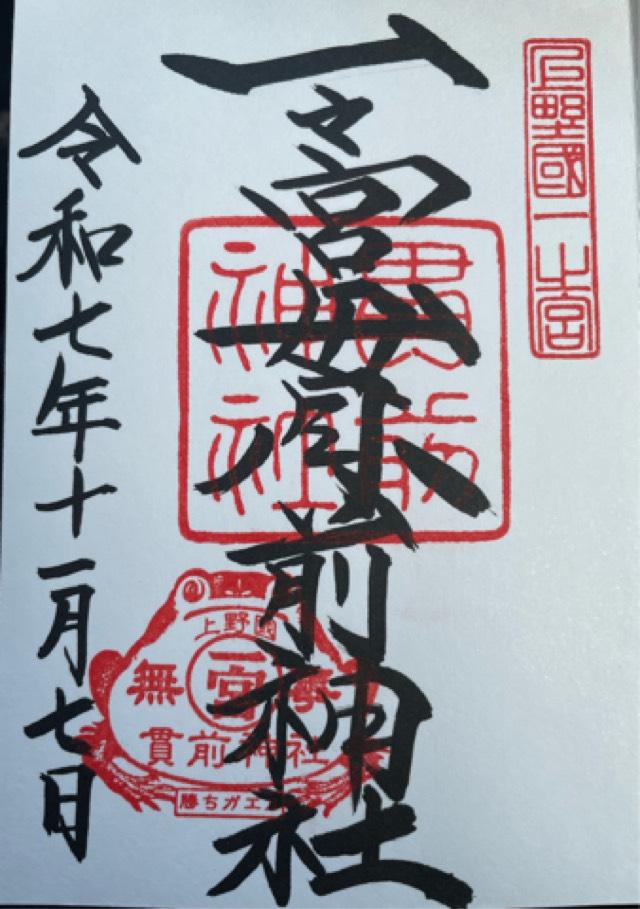 上野國一之宮
一之宮貫前神社
貫前
神社
上野國
無 一宮
貫前神社
勝ちガエ
令和七年十一月七日